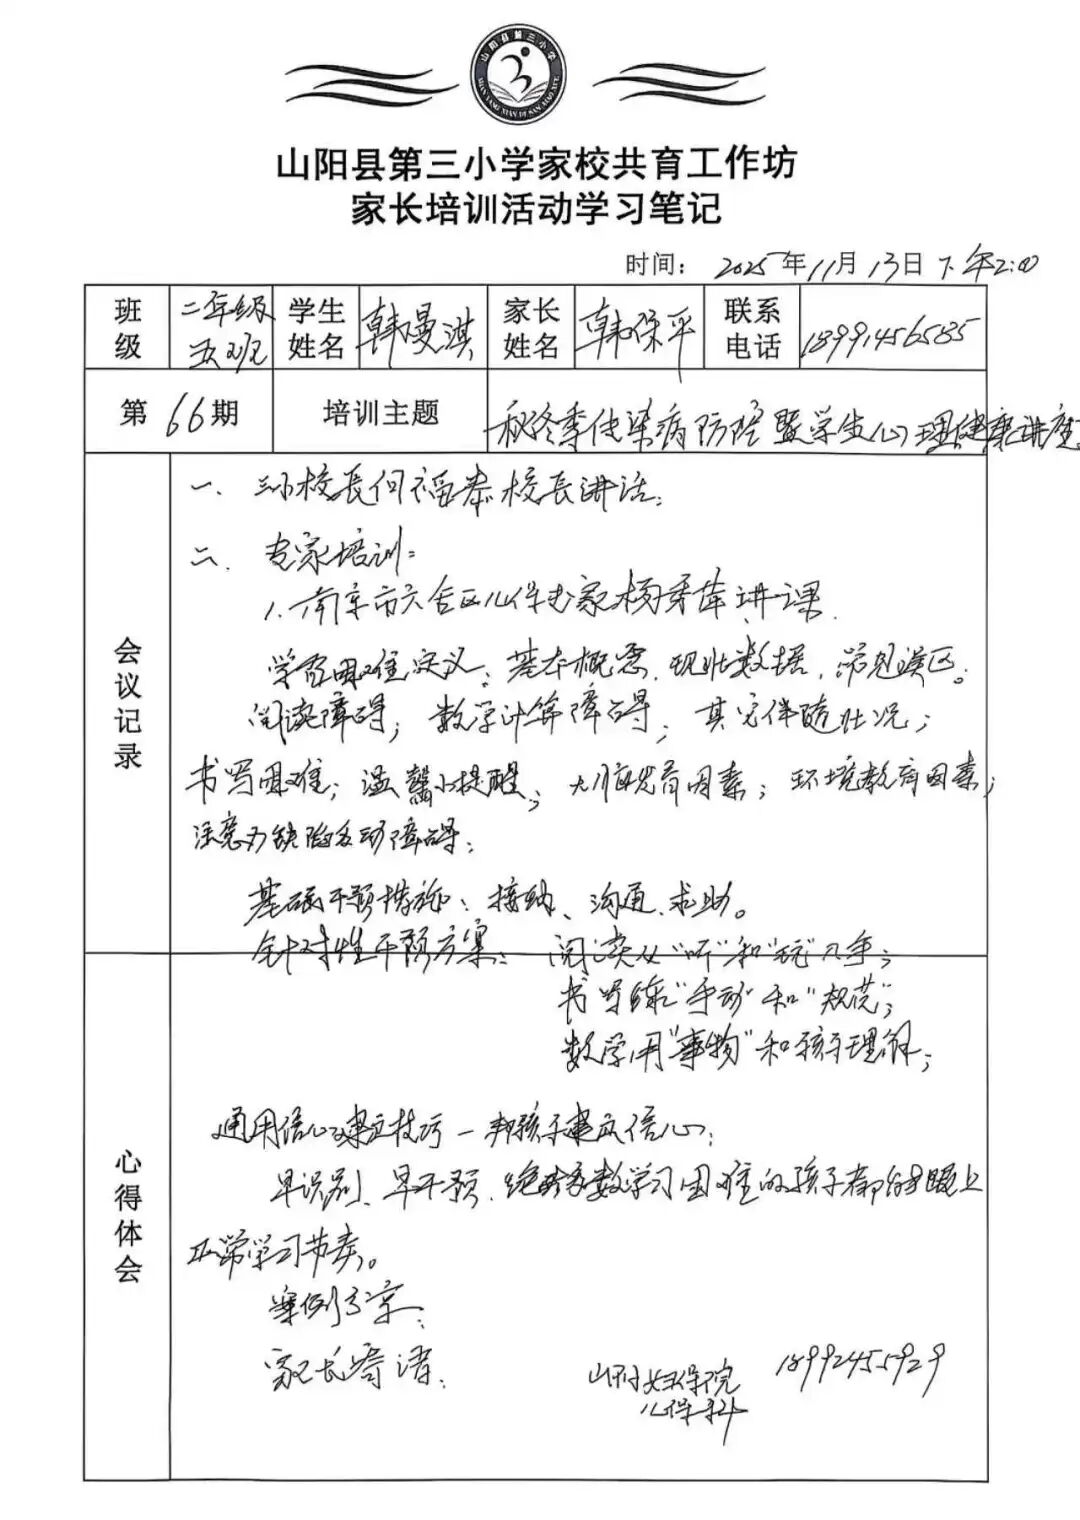 山阳县第三小学
SHAN YANG XIAN DI SAN XIAO XUE
山阳县第三小学家校共育工作坊
家长培训活动学习笔记
时间： 2025年11月13日下午2:00
班级 二年级五班 学生姓名 韩曼淇 家长姓名 韩保平 联系电话 18991456585
第66期 培训主题 秋冬季传染病防控暨学生心理健康讲座
会议记录
一、三小校长何福泰校长讲话；
二、专家培训：
1、南京市六合区儿保专家杨 讲课
学习困难定义：基本概念、现状数据，常见误区。
阅读障碍；数学计算障碍；其它伴随状况；
书写困难；温馨小提醒；大脑发育因素；环境教育因素；
注意力缺陷多动障碍；
基础干预措施：接纳、沟通、求助。
针对性干预方案：阅读从“听”和“玩”入手；
书写练“手动”和“规范”；
数学用“事物”和孩子理解；
心得体会
通用信心建立技巧一帮孩子建立信心：
早识别、早干预，绝大多数学习困难的孩子都能跟上
正常学习节奏。
案例分享：
家长寄语：
山阳妇保院 18992455929
儿保科